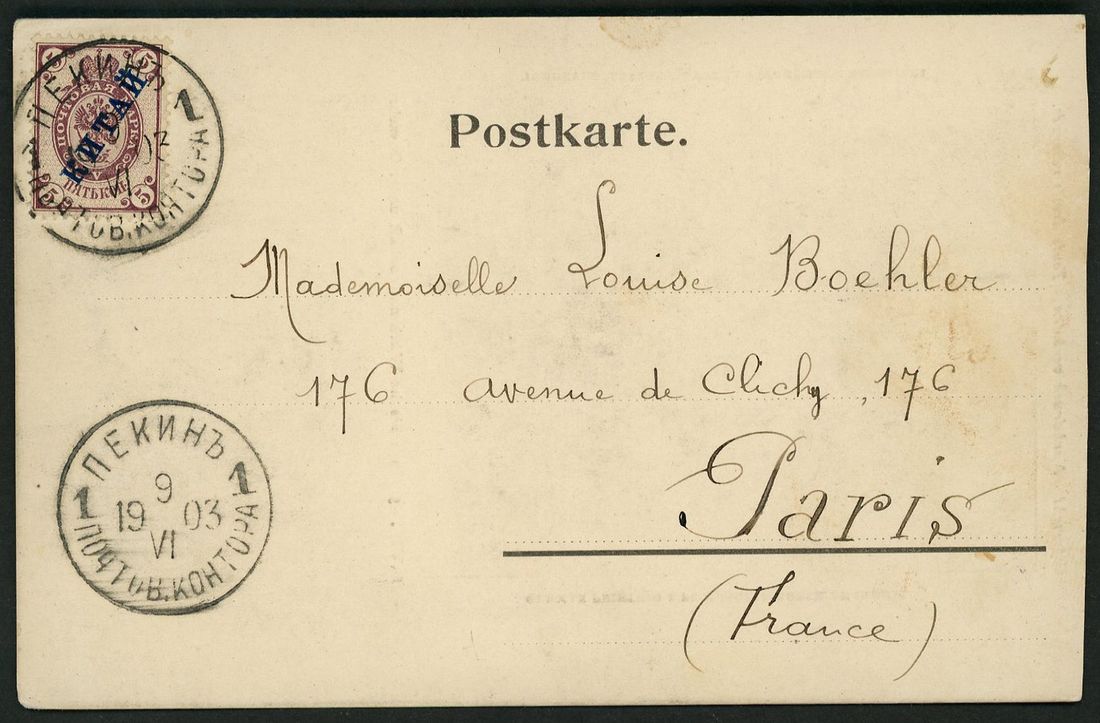 5 5
ПОЧТОВАЯ МАРКА
КИТАЙ
ПЯТЬ КОП.
5 5
ПЕКИНЪ
1
03
VI
ПОЧТОВ. КОНТОРА
Postkarte.
Mademoiselle Louise Boehler
176 avenue de Clichy, 176
Paris
(France)
ПЕКИНЪ
1 1
9
19 03
VI
ПОЧТОВ. КОНТОРА